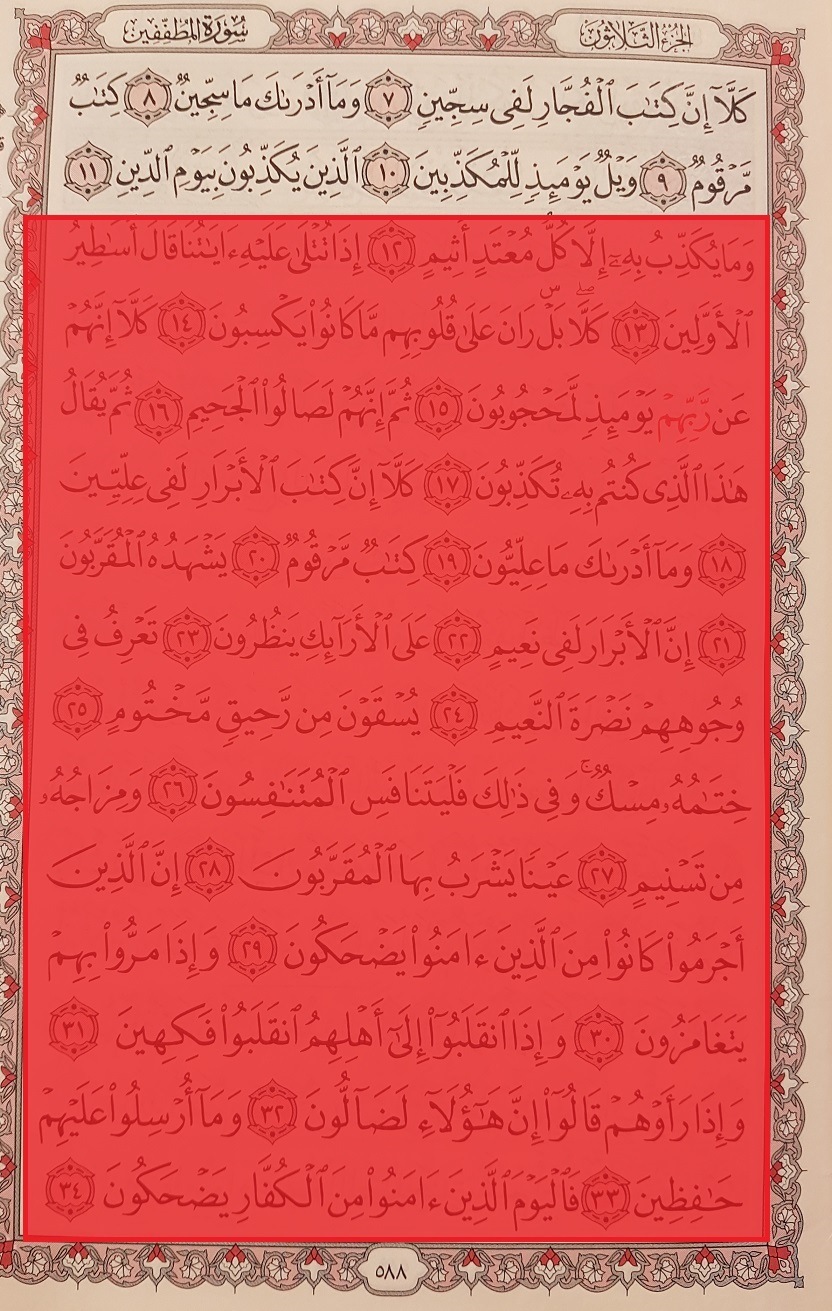 الجزء الثلاثون
سورة المطففين
كَلَّآ إِنَّ كِتَٰبَ ٱلْفُجَّارِ لَفِى سِجِّينٍ ٧ وَمَآ أَدْرَىٰكَ مَا سِجِّينٌ ٨ كِتَٰبٌ
مَّرْقُومٌ ٩ وَيْلٌ يَوْمَئِذٍ لِّلْمُكَذِّبِينَ ١٠ ٱلَّذِينَ يُكَذِّبُونَ بِيَوْمِ ٱلدِّينِ ١١
وَمَا يُكَذِّبُ بِهِۦٓ إِلَّا كُلُّ مُعْتَدٍ أَثِيمٍ ١٢ إِذَا تُتْلَىٰ عَلَيْهِ ءَايَٰتُنَا قَالَ أَسَٰطِيرُ
ٱلْأَوَّلِينَ ١٣ كَلَّا ۖ بَلْ ۜ رَانَ عَلَىٰ قُلُوبِهِم مَّا كَانُوا۟ يَكْسِبُونَ ١٤ كَلَّآ إِنَّهُمْ
عَن رَّبِّهِمْ يَوْمَئِذٍ لَّمَحْجُوبُونَ ١٥ ثُمَّ إِنَّهُمْ لَصَالُوا۟ ٱلْجَحِيمِ ١٦ ثُمَّ يُقَالُ
هَٰذَا ٱلَّذِى كُنتُم بِهِۦ تُكَذِّبُونَ ١٧ كَلَّآ إِنَّ كِتَٰبَ ٱلْأَبْرَارِ لَفِى عِلِّيِّينَ
١٨ وَمَآ أَدْرَىٰكَ مَا عِلِّيُّونَ ١٩ كِتَٰبٌ مَّرْقُومٌ ٢٠ يَشْهَدُهُ ٱلْمُقَرَّبُونَ
٢١ إِنَّ ٱلْأَبْرَارَ لَفِى نَعِيمٍ ٢٢ عَلَى ٱلْأَرَآئِكِ يَنظُرُونَ ٢٣ تَعْرِفُ فِى
وُجُوهِهِمْ نَضْرَةَ ٱلنَّعِيمِ ٢٤ يُسْقَوْنَ مِن رَّحِيقٍ مَّخْتُومٍ ٢٥
خِتَٰمُهُۥ مِسْكٌ ۚ وَفِى ذَٰلِكَ فَلْيَتَنَافَسِ ٱلْمُتَنَٰفِسُونَ ٢٦ وَمِزَاجُهُۥ
مِن تَسْنِيمٍ ٢٧ عَيْنًا يَشْرَبُ بِهَا ٱلْمُقَرَّبُونَ ٢٨ إِنَّ ٱلَّذِينَ
أَجْرَمُوا۟ كَانُوا۟ مِنَ ٱلَّذِينَ ءَامَنُوا۟ يَضْحَكُونَ ٢٩ وَإِذَا مَرُّوا۟ بِهِمْ
يَتَغَامَزُونَ ٣٠ وَإِذَا ٱنقَلَبُوٓا۟ إِلَىٰٓ أَهْلِهِمُ ٱنقَلَبُوا۟ فَكِهِينَ ٣١
وَإِذَا رَأَوْهُمْ قَالُوٓا۟ إِنَّ هَٰٓؤُلَآءِ لَضَآلُّونَ ٣٢ وَمَآ أُرْسِلُوا۟ عَلَيْهِمْ
حَٰفِظِينَ ٣٣ فَٱلْيَوْمَ ٱلَّذِينَ ءَامَنُوا۟ مِنَ ٱلْكُفَّارِ يَضْحَكُونَ ٣٤
٥٨٨